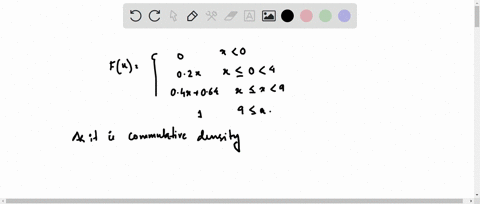 0 x < 0
F(x) = { 0.2x x ≤ 0 < 4
0.4x + 0.64 x ≤ x < 9
1 9 ≤ x.
As it is commulative density